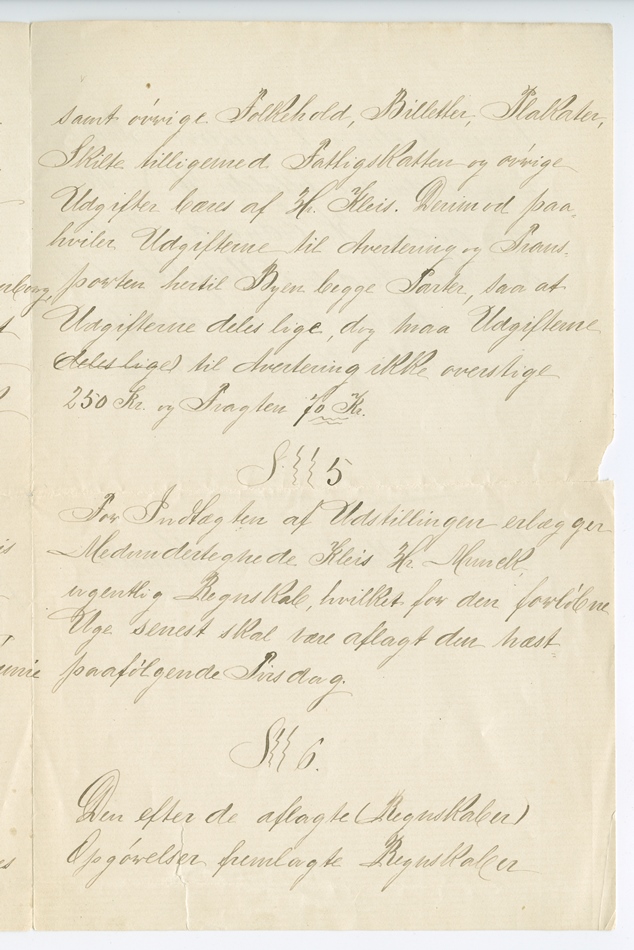 samt övrige Folkehold, Billetter, Plakater,
Skilte tilligemed Fattigskatten og övrige
Udgifter bæres af Hr. Kleis. Derimod paa-
hviler Udgifterne til Avertering og Trans-
porten hertil Byen begge Parter, saa at
Udgifterne deles lige, dog maa Udgifterne
(deles lige) til Avertering ikke overstige
250 Kr. og Fragten 70 Kr.
§ 5
For Indtægten af Udstillingen erlægger
Medundertegnede Kleis Hr. Munck
ugentlig Regnskab, hvilket for den forlöbne
Uge senest skal være aflagt den næst
paafölgende Tirsdag.
§ 6.
Den efter de aflagte (Regnskaber)
Opgörelser fremlagte Regnskaber